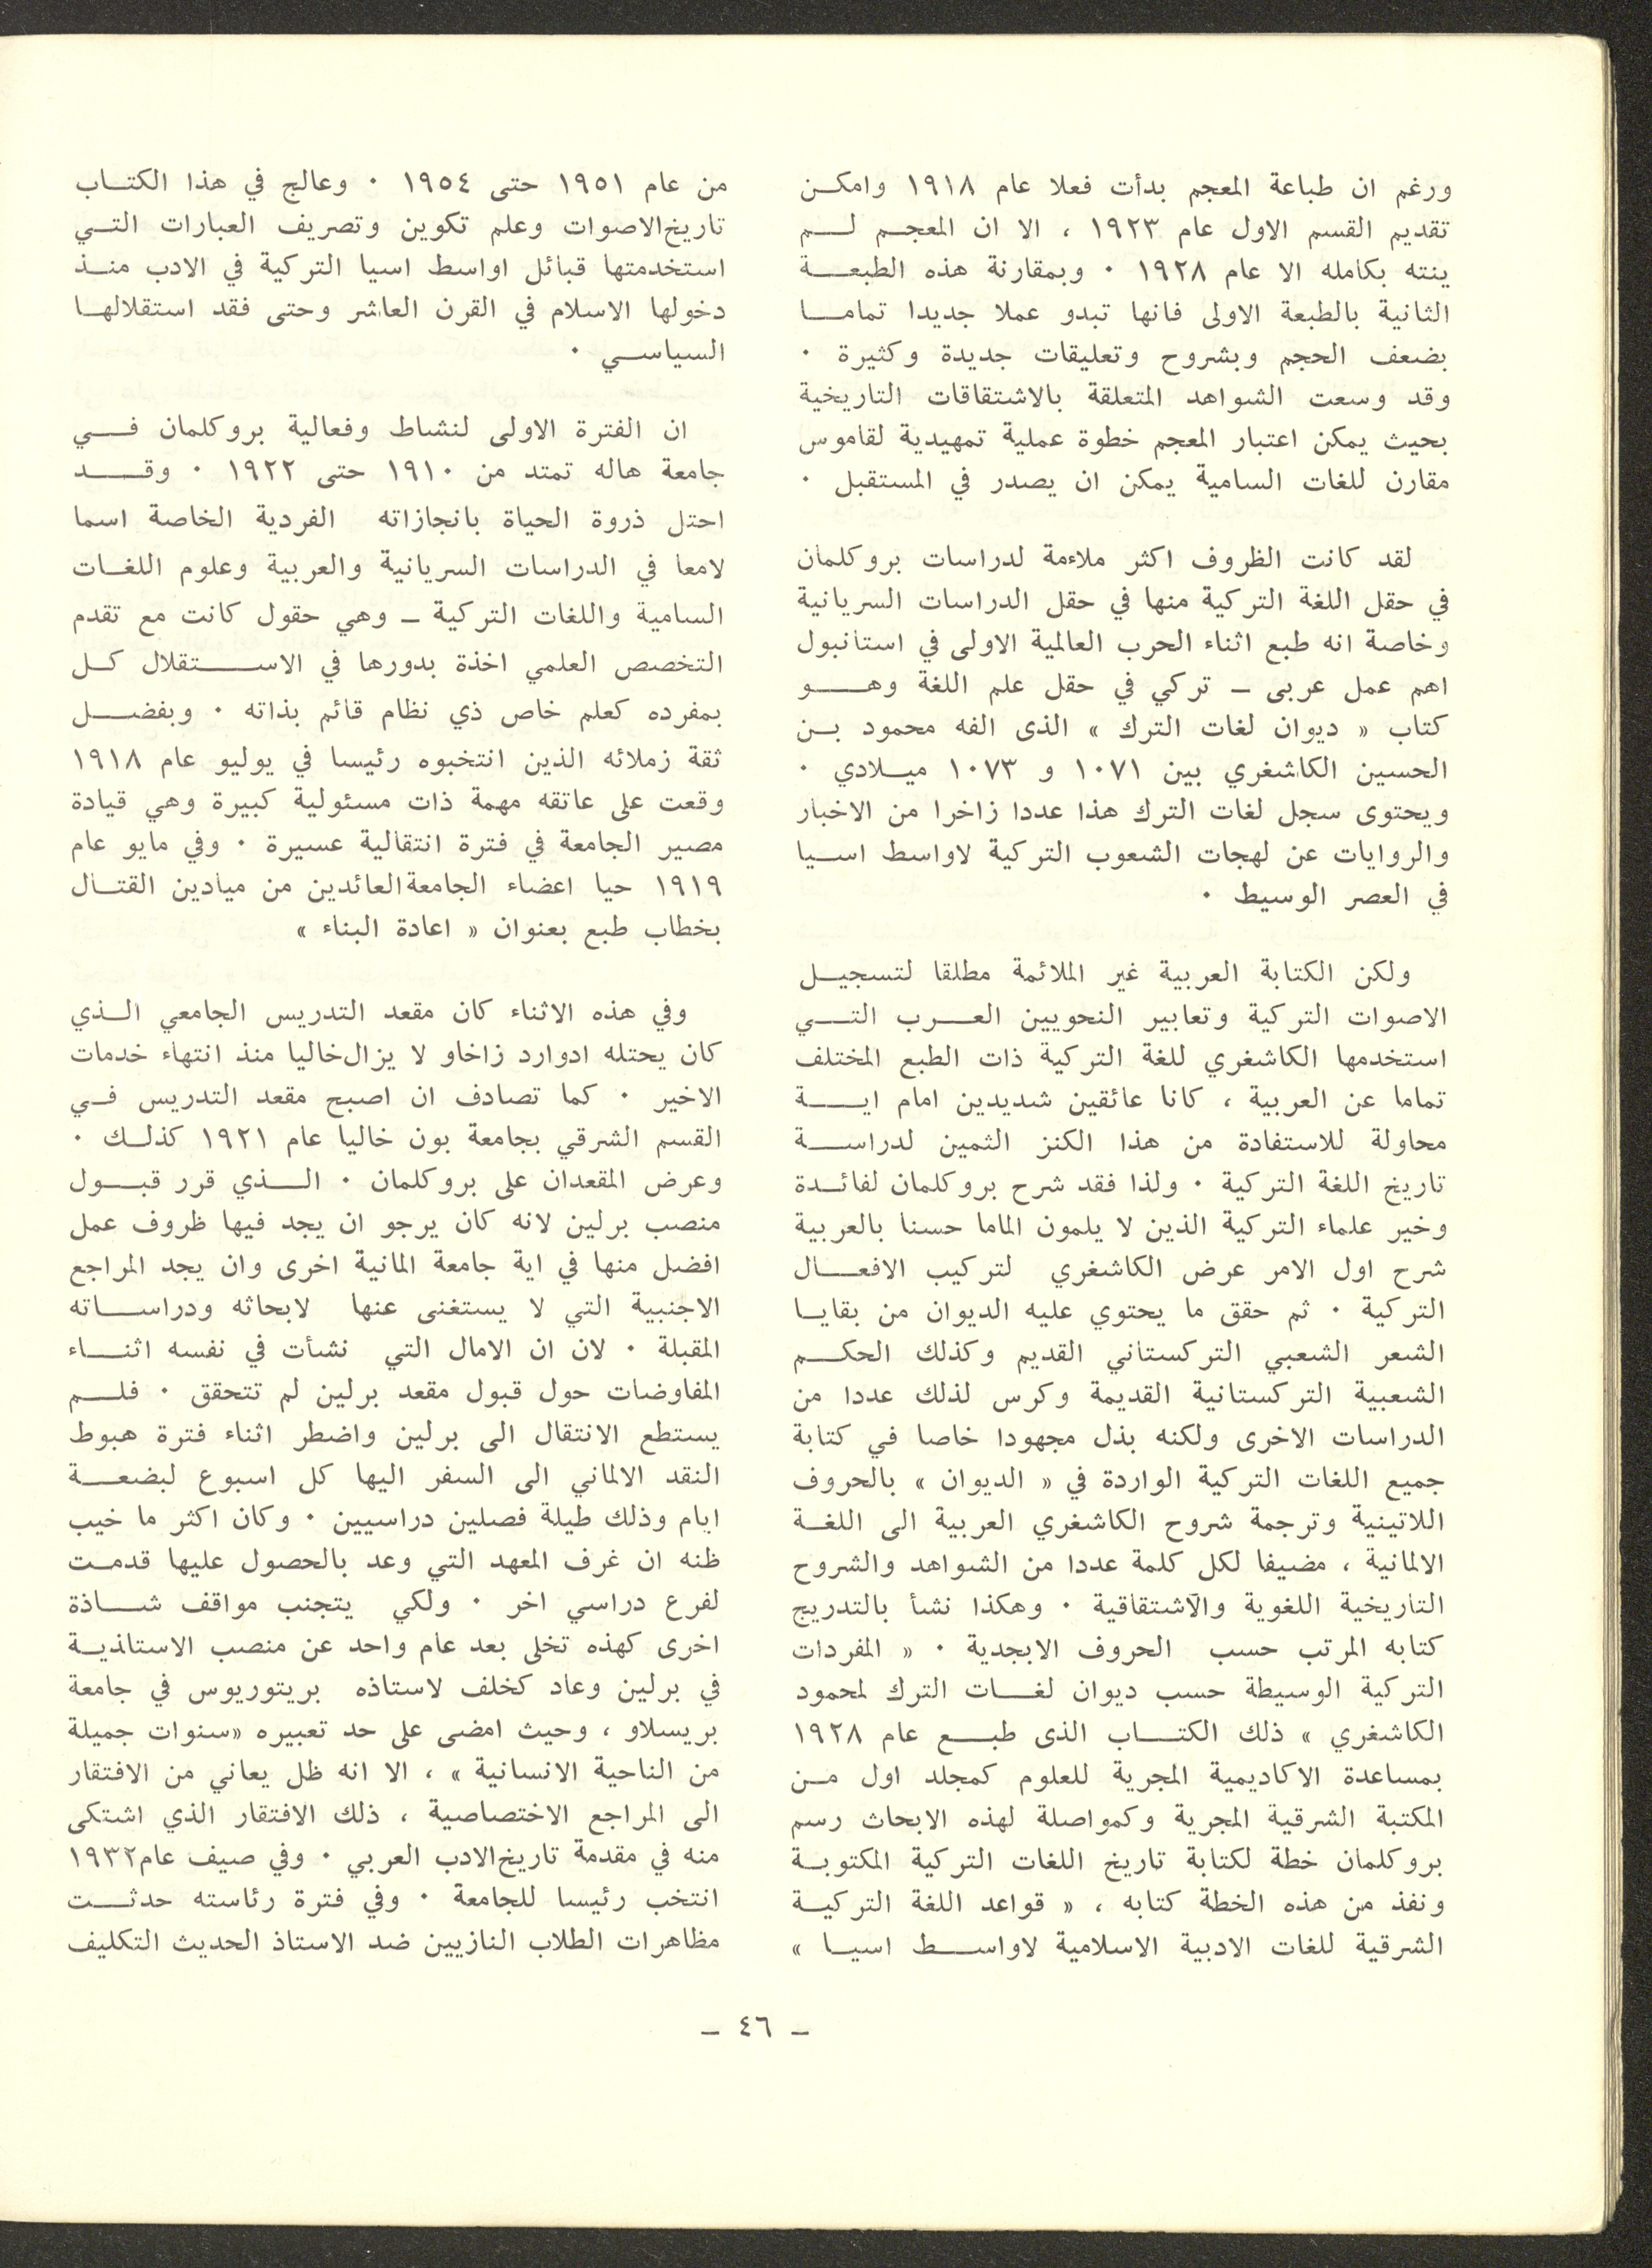 ورغم ان طباعة المعجم بدأت فعلا عام ١٩١٨ وامكن
تقديم القسم الاول عام ١٩٢٣ ، الا ان المعجم لم
ينته بكامله الا عام ١٩٢٨ ٠ وبمقارنة هذه الطبعة
الثانية بالطبعة الاولى فانها تبدو عملا جديدا تماما
بضعف الحجم وبشروح وتعليقات جديدة وكثيرة ٠
وقد وسعت الشواهد المتعلقة بالاشتقاقات التاريخية
بحيث يمكن اعتبار المعجم خطوة عملية تمهيدية لقاموس
مقارن للغات السامية يمكن ان يصدر في المستقبل ٠
لقد كانت الظروف اكثر ملاءمة لدراسات بروكلمان
في حقل اللغة التركية منها في حقل الدراسات السريانية
وخاصة انه طبع اثناء الحرب العالمية الاولى في استانبول
اهم عمل عربى ـ تركي في حقل علم اللغة وهو
كتاب « ديوان لغات الترك » الذى الفه محمود بن
الحسين الكاشغري بين ١٠٧١ و ١٠٧٣ ميلادي ٠
ويحتوى سجل لغات الترك هذا عددا زاخرا من الاخبار
والروايات عن لهجات الشعوب التركية لاواسط اسيا
في العصر الوسيط ٠
ولكن الكتابة العربية غير الملائمة مطلقا لتسجيل
الاصوات التركية وتعابير النحويين العرب التي
استخدمها الكاشغري للغة التركية ذات الطبع المختلف
تماما عن العربية ، كانا عائقين شديدين امام اية
محاولة للاستفادة من هذا الكنز الثمين لدراسة
تاريخ اللغة التركية ٠ ولذا فقد شرح بروكلمان لفائدة
وخير علماء التركية الذين لا يلمون الماما حسنا بالعربية
شرح اول الامر عرض الكاشغري لتركيب الافعال
التركية ٠ ثم حقق ما يحتوي عليه الديوان من بقايا
الشعر الشعبي التركستاني القديم وكذلك الحكم
الشعبية التركستانية القديمة وكرس لذلك عددا من
الدراسات الاخرى ولكنه بذل مجهودا خاصا في كتابة
جميع اللغات التركية الواردة في « الديوان » بالحروف
اللاتينية وترجمة شروح الكاشغري العربية الى اللغة
الالمانية ، مضيفا لكل كلمة عددا من الشواهد والشروح
التاريخية اللغوية والآشتقاقية ٠ وهكذا نشأ بالتدريج
كتابه المرتب حسب الحروف الابجدية ٠ « المفردات
التركية الوسيطة حسب ديوان لغات الترك لمحمود
الكاشغري » ذلك الكتاب الذى طبع عام ١٩٢٨
بمساعدة الاكاديمية المجرية للعلوم كمجلد اول من
المكتبة الشرقية المجرية وكمواصلة لهذه الابحاث رسم
بروكلمان خطة لكتابة تاريخ اللغات التركية المكتوبة
ونفذ من هذه الخطة كتابه ، « قواعد اللغة التركية
الشرقية للغات الادبية الاسلامية لاواسط اسيا »
من عام ١٩٥١ حتى ١٩٥٤ ٠ وعالج في هذا الكتاب
تاريخ الاصوات وعلم تكوين وتصريف العبارات التي
استخدمتها قبائل اواسط اسيا التركية في الادب منذ
دخولها الاسلام في القرن العاشر وحتى فقد استقلالها
السياسي ٠
ان الفترة الاولى لنشاط وفعالية بروكلمان في
جامعة هاله تمتد من ١٩١٠ حتى ١٩٢٢ ٠ وقد
احتل ذروة الحياة بانجازاته الفردية الخاصة اسما
لامعا في الدراسات السريانية والعربية وعلوم اللغات
السامية واللغات التركية ـ وهي حقول كانت مع تقدم
التخصص العلمي اخذة بدورها في الاستقلال كل
بمفرده كعلم خاص ذي نظام قائم بذاته ٠ وبفضل
ثقة زملائه الذين انتخبوه رئيسا في يوليو عام ١٩١٨
وقعت على عاتقه مهمة ذات مسئولية كبيرة وهي قيادة
مصير الجامعة في فترة انتقالية عسيرة ٠ وفي مايو عام
١٩١٩ حيا اعضاء الجامعة العائدين من ميادين القتال
بخطاب طبع بعنوان « اعادة البناء »
وفي هذه الاثناء كان مقعد التدريس الجامعي الذي
كان يحتله ادوارد زاخاو لا يزال خاليا منذ انتهاء خدمات
الاخير ٠ كما تصادف ان اصبح مقعد التدريس في
القسم الشرقي بجامعة بون خاليا عام ١٩٢١ كذلك ٠
وعرض المقعدان على بروكلمان ٠ الذي قرر قبول
منصب برلين لانه كان يرجو ان يجد فيها ظروف عمل
افضل منها في اية جامعة المانية اخرى وان يجد المراجع
الاجنبية التي لا يستغنى عنها لابحاثه ودراساته
المقبلة ٠ لان ان الامال التي نشأت في نفسه اثناء
المفاوضات حول قبول مقعد برلين لم تتحقق ٠ فلم
يستطع الانتقال الى برلين واضطر اثناء فترة هبوط
النقد الالماني الى السفر اليها كل اسبوع لبضعة
ايام وذلك طيلة فصلين دراسيين ٠ وكان اكثر ما خيب
ظنه ان غرف المعهد التي وعد بالحصول عليها قدمت
لفرع دراسي اخر ٠ ولكي يتجنب مواقف شاذة
اخرى كهذه تخلى بعد عام واحد عن منصب الاستاذية
في برلين وعاد كخلف لاستاذه بريتوريوس في جامعة
بريسلاو ، وحيث امضى على حد تعبيره «سنوات جميلة
من الناحية الانسانية » ، الا انه ظل يعاني من الافتقار
الى المراجع الاختصاصية ، ذلك الافتقار الذي اشتكى
منه في مقدمة تاريخ الادب العربي ٠ وفي صيف عام ١٩٣٢
انتخب رئيسا للجامعة ٠ وفي فترة رئاسته حدثت
مظاهرات الطلاب النازيين ضد الاستاذ الحديث التكليف
ـ ٤٦ ـ